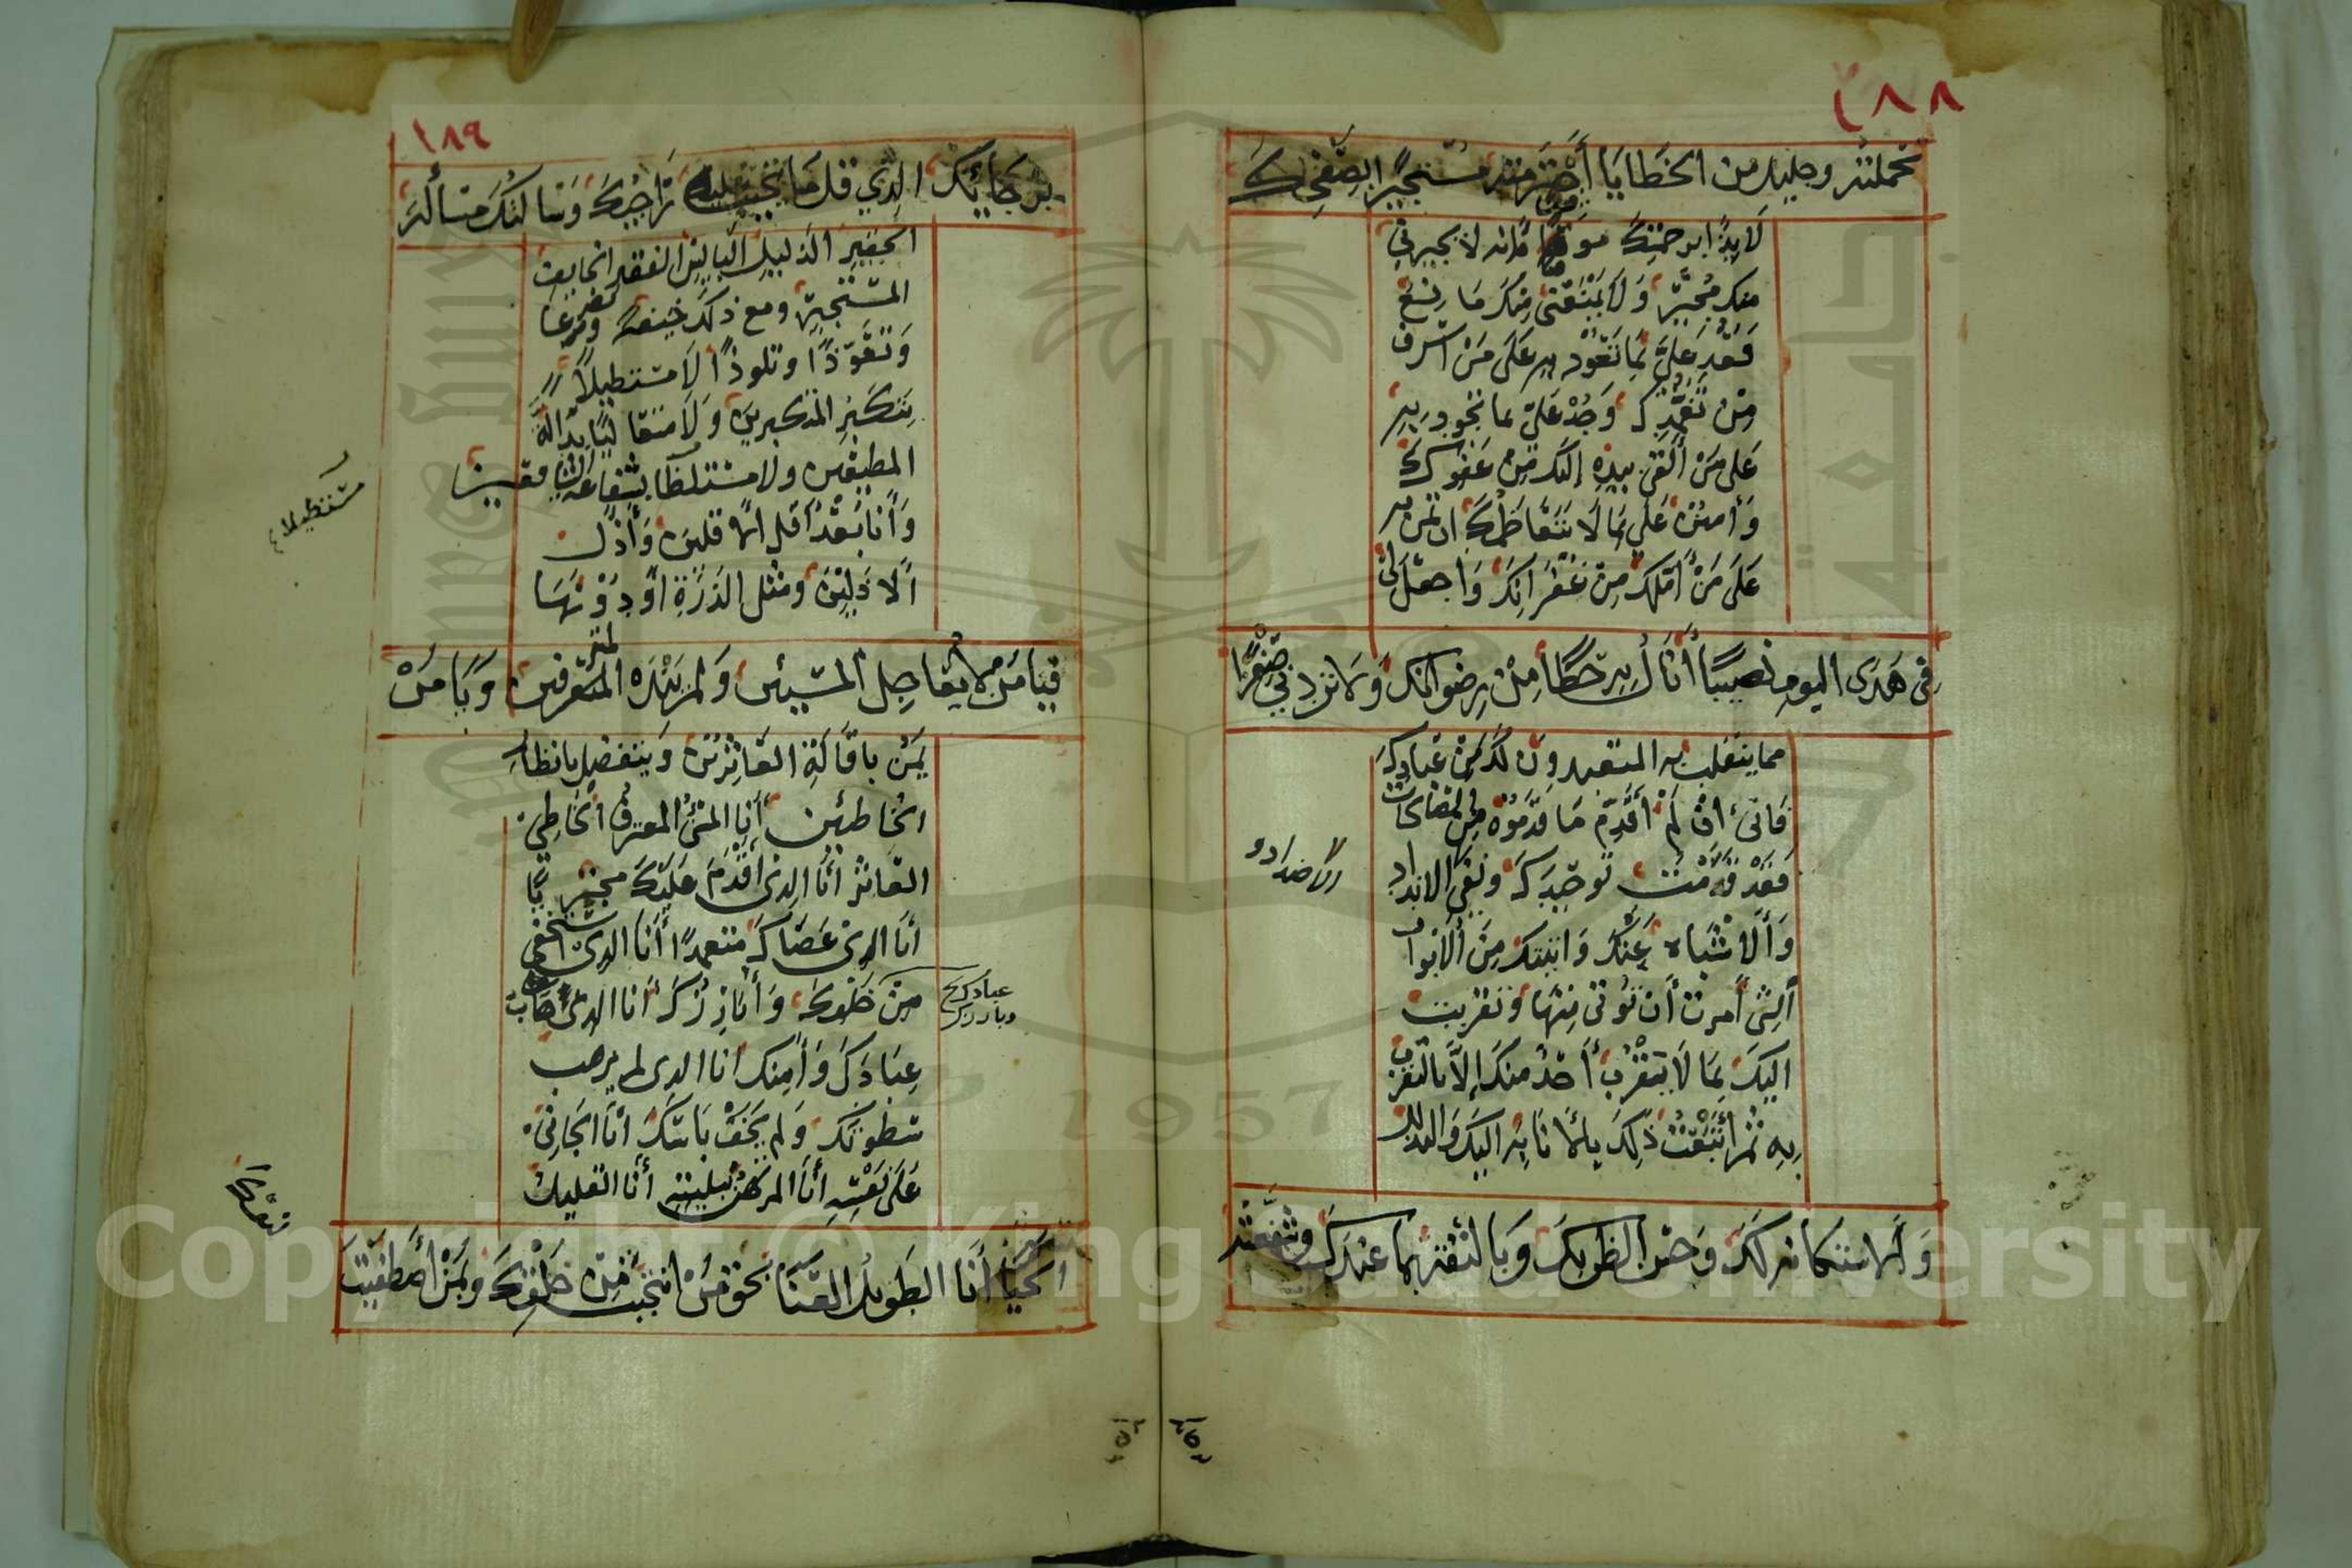 ٢٨٨
تحملته وجليل من الخطايا أجترمته مستجيرًا بصفحك
لايذًا برحمتك موقنًا فانه لا يجيرني
منك مُجير وَلا يمْنَعني مِنكَ مَانع
فَعُد عَليَّ بمَا تعُوْد به عَلى مَنْ اسْرف
مِنْ تغمّدِكَ وَجُدْ عَليّ بما تجود به
عَلى مَنْ ألقى بيدِهِ إليكَ مِنْ عَفوكَ
وَأمنُنْ عَليّ بمَا لَا يَتعَاظمُكَ ان تمن به
عَلى مَنْ أمّلكَ مِنْ غفرَانِكَ وَاجعَل لي
فِى هَذى اليوم نصيبًا أنَالُ بِه حَظًّا مِنْ رِضوانكَ وَلا تردني صِفْرًا
مما ينقلب به المتعبدونَ لكَ مِنْ عبَادِكَ
فَانى وَان لمْ أقَدّم مَا قدّمُوهُ مِنَ الصّالحَات
فقَدْ قدّمْتُ توحيدَكَ ونفي الاندادِ
وَألاشْبَاه عَنكَ وَاتيتكَ مِنَ ألابْوَاب
ألتى أمَرت أن تُؤتى مِنهَا وَتقربت
اليكَ بمَا لَا يَتقرُب أحَدٌ منكَ إلَّا بالتقرب
بِهِ ثمَّ أتْبَعْتُ ذلِكَ بالانَابَه اليكَ وَالتذلل
وَألاستكانه لكَ وَحسْن الظن بكَ وَبالثقة بما عندكَ وشفعته
الاضداد و
١٨٩
برَجَائكَ الذِي قل مَا يخيب عليه رَاجِيْكَ وَسَالتكَ مَسألة
الحقير الذليل البائس الفقير الخايف
المسْتجير ومع ذلكَ خيفة وتضرعًا
وَتعَوّذًا وتلوذًا لَا مسْتطيلًا
بتكبر المتكبرين وَلا متعاليًا بدَالة
المطيعين ولا مستطيلا بشفاعة الشافعين
وَأنا بَعْدُ أقل الاقلين وَأذلّ
ألاذَلينَ ومثل الذرّةِ أوْ دوْنهَا
فيا مَن لا يعَاجل المسِيئين وَلم يندَه المترفين وَيَا مَنْ
يَمُن باقالَةِ العَاثِرينَ وَيتفضل بانظار
الخاطئين أنا المسِيئُ المعترف الخاطِئ
العاثر أنا الذى أقدَمَ عليْكَ مجترِيًا
أنا الذى عَصَاكَ متعمدًا أنا الذى استخفى
مِنْ خلقِكَ وَأبَارزكَ أنا الذى هَابَ
عِبَادَكَ وَأمنكَ انا الذى لم يرهب
سَطوتكَ وَلم يخَفْ بَاسَكَ أنَا الجَانِى
عَلى نفسِهِ أنَا المرتهَن ببليته أنا القليل
الحَيَا أنَا الطَويل العَنَا بحق مَن انتجبت مِن خلقِكَ وَبمَن أصْطفيت
مستطيلا
عبادك
وبارزك